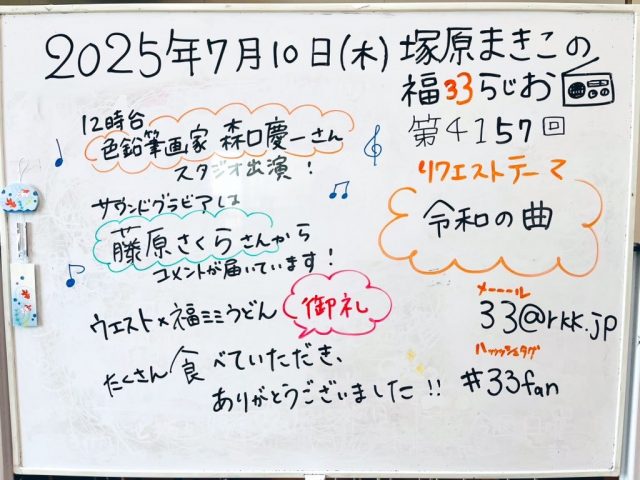 2025年7月10日(木) 塚原まきこの
福33らじお
第4157回
12時台
色鉛筆画家 森口慶一さん
スタジオ出演!
サウンドグラビアは
藤原さくらさんから
コメントが届いています!
ウエスト×福ミミうどん 御礼
たくさん食べていただき、
ありがとうございました!!
リクエストテーマ
令和の曲
メーール
33@rkk.jp
ハッシュタグ
#33fan